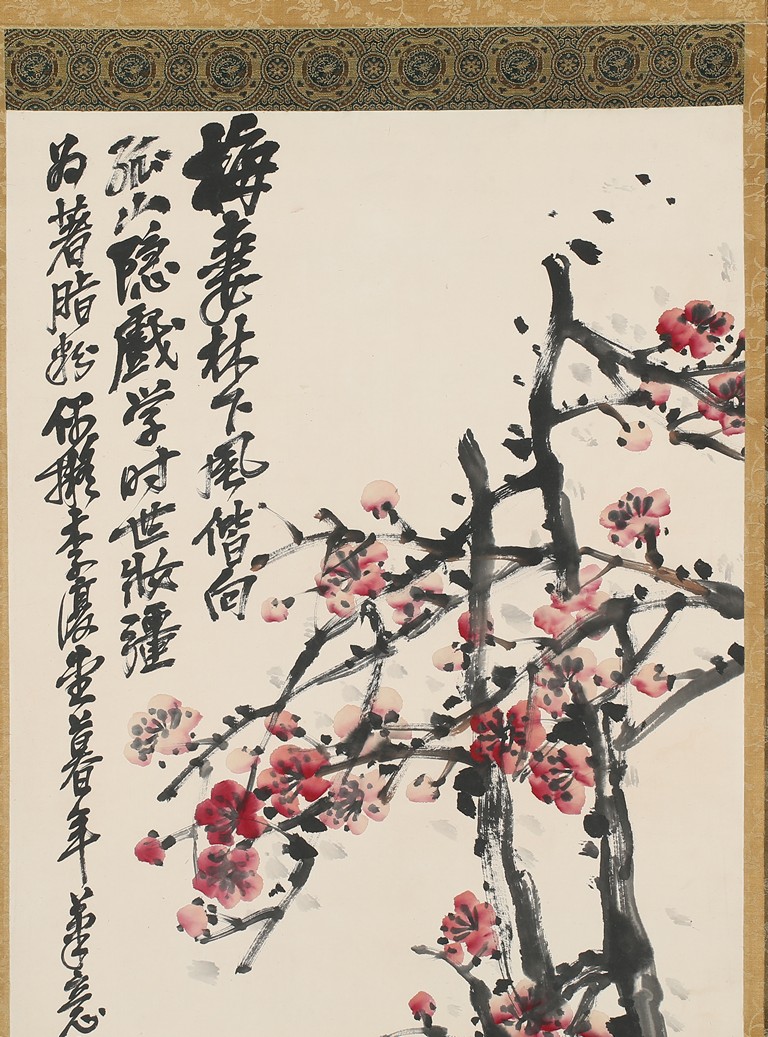 梅妻林下風偕向
孤山隱戲学時世妝彊
為著脂粉仿擬李復堂暮年筆意